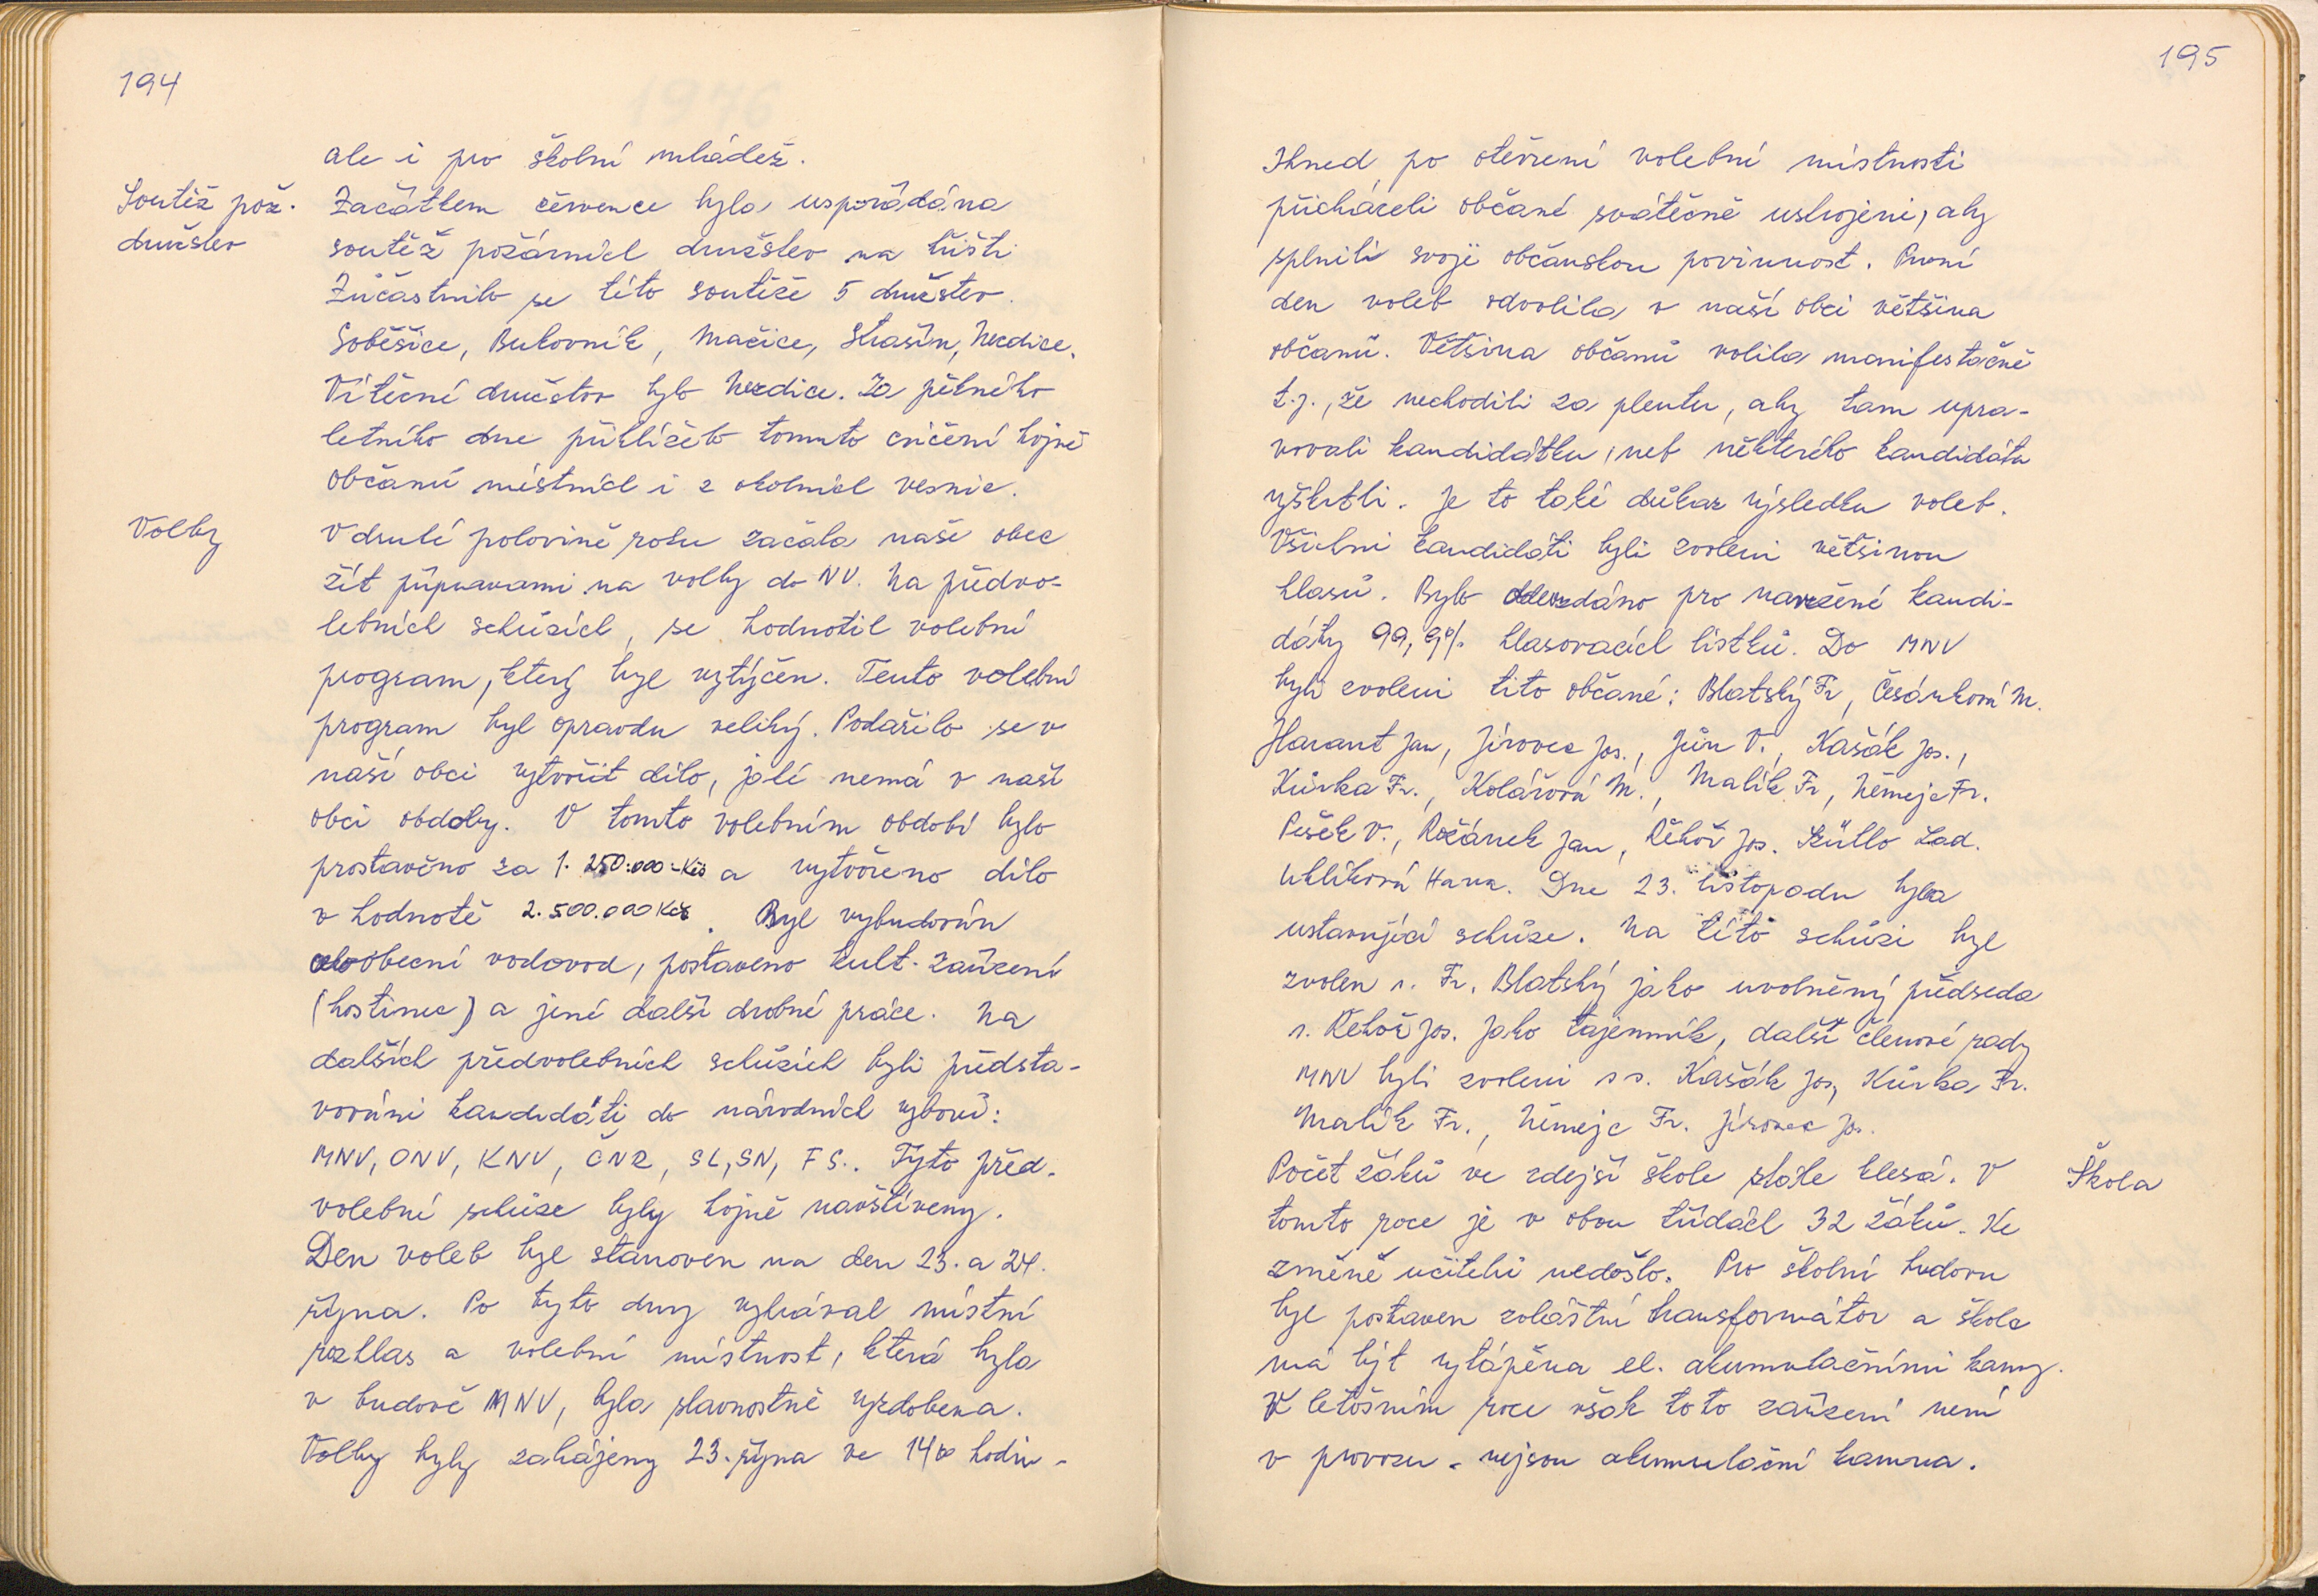 194
ale i pro školní mládež.
Soutěž pož.
družstev
Začátkem července byla uspořádána
soutěž požárních družstev na hřišti
Zúčastnilo se této soutěže 5 družstev.
Soběšice, Bukovník, Mačice, Strašín, Nezdice.
Vítězné družstvo bylo Nezdice. Za pěkného
letního dne přihlíželo tomuto cvičení hojně
občanů místních i z okolních vesnic.
Volby
V druhé polovině roku začala naše obec
žít přípravami na volby do NV. Na předvo-
lebních schůzích, se hodnotil volební
program, který byl vytýčen. Tento volební
program byl opravdu veliký. Podařilo se v
naší obci vytvořit dílo, jaké nemá v naší
obci obdoby. V tomto volebním období bylo
prostavěno za 1.250.000-Kčs a vytvořeno dílo
v hodnotě 2.500.000 Kčs. Byl vybudován
celoobecní vodovod, postaveno kult. zařízení
(hostinec) a jiné další drobné práce. Na
dalších předvolebních schůzích byli předsta-
vováni kandidáti do národních výborů:
MNV, ONV, KNV, ČNR, SL, SN, FS.. Tyto před-
volební schůze byly hojně navštíveny.
Den voleb byl stanoven na den 23. a 24.
října. Po tyto dny vyhrával místní
rozhlas a volební místnost, která byla
v budově MNV, byla slavnostně vyzdobena.
Volby byly zahájeny 23. října ve 14 00 hodin.
195
Ihned po otevření volební místnosti
přicházeli občané svátečně ustrojeni, aby
splnili svoji občanskou povinnost. První
den voleb odvolila v naší obci většina
občanů. Většina občanů volila manifestačně
t.j., že nechodili za plentu, aby tam upra-
vovali kandidátku, neb některého kandidáta
vyškrtli. Je to také důkaz výsledku voleb.
Všichni kandidáti byli zvoleni většinou
hlasů. Bylo odevzdáno pro navržené kandi-
dáty 99,9% hlasovacích lístků. Do MNV
byli zvoleni tito občané: Blatský Fr, Česánková M.
Harant Jan, Jírovec Jos., Jůn V., Kašák Jos.,
Kůrka Fr., Kolářová M., Malík Fr, Němejc Fr.
Pešek V., Rožánek Jan, Řehoř Jos. Lad.
Uhlíková Hana. Dne 23. listopadu byla
ustavující schůze. Na této schůzi byl
zvolen s. Fr. Blatský jako uvolněný předseda
s. Řehoř Jos. jako tajemník, další členové rady
MNV byli zvoleni s s. Kašák Jos, Kůrka Fr.
Malík Fr., Němejc Fr. Jírovec Jos.
Škola
Počet žáků ve zdejší škole stále klesá. V
tomto roce je v obou třídách 32 žáků. Ke
změně učitelů nedošlo. Pro školní budovu
byl postaven zvláštní transformátor a škola
má být vytápěna el. akumulačními kamny.
V letošním roce však toto zařízení není
v provozu. nejsou akumulační kamna.